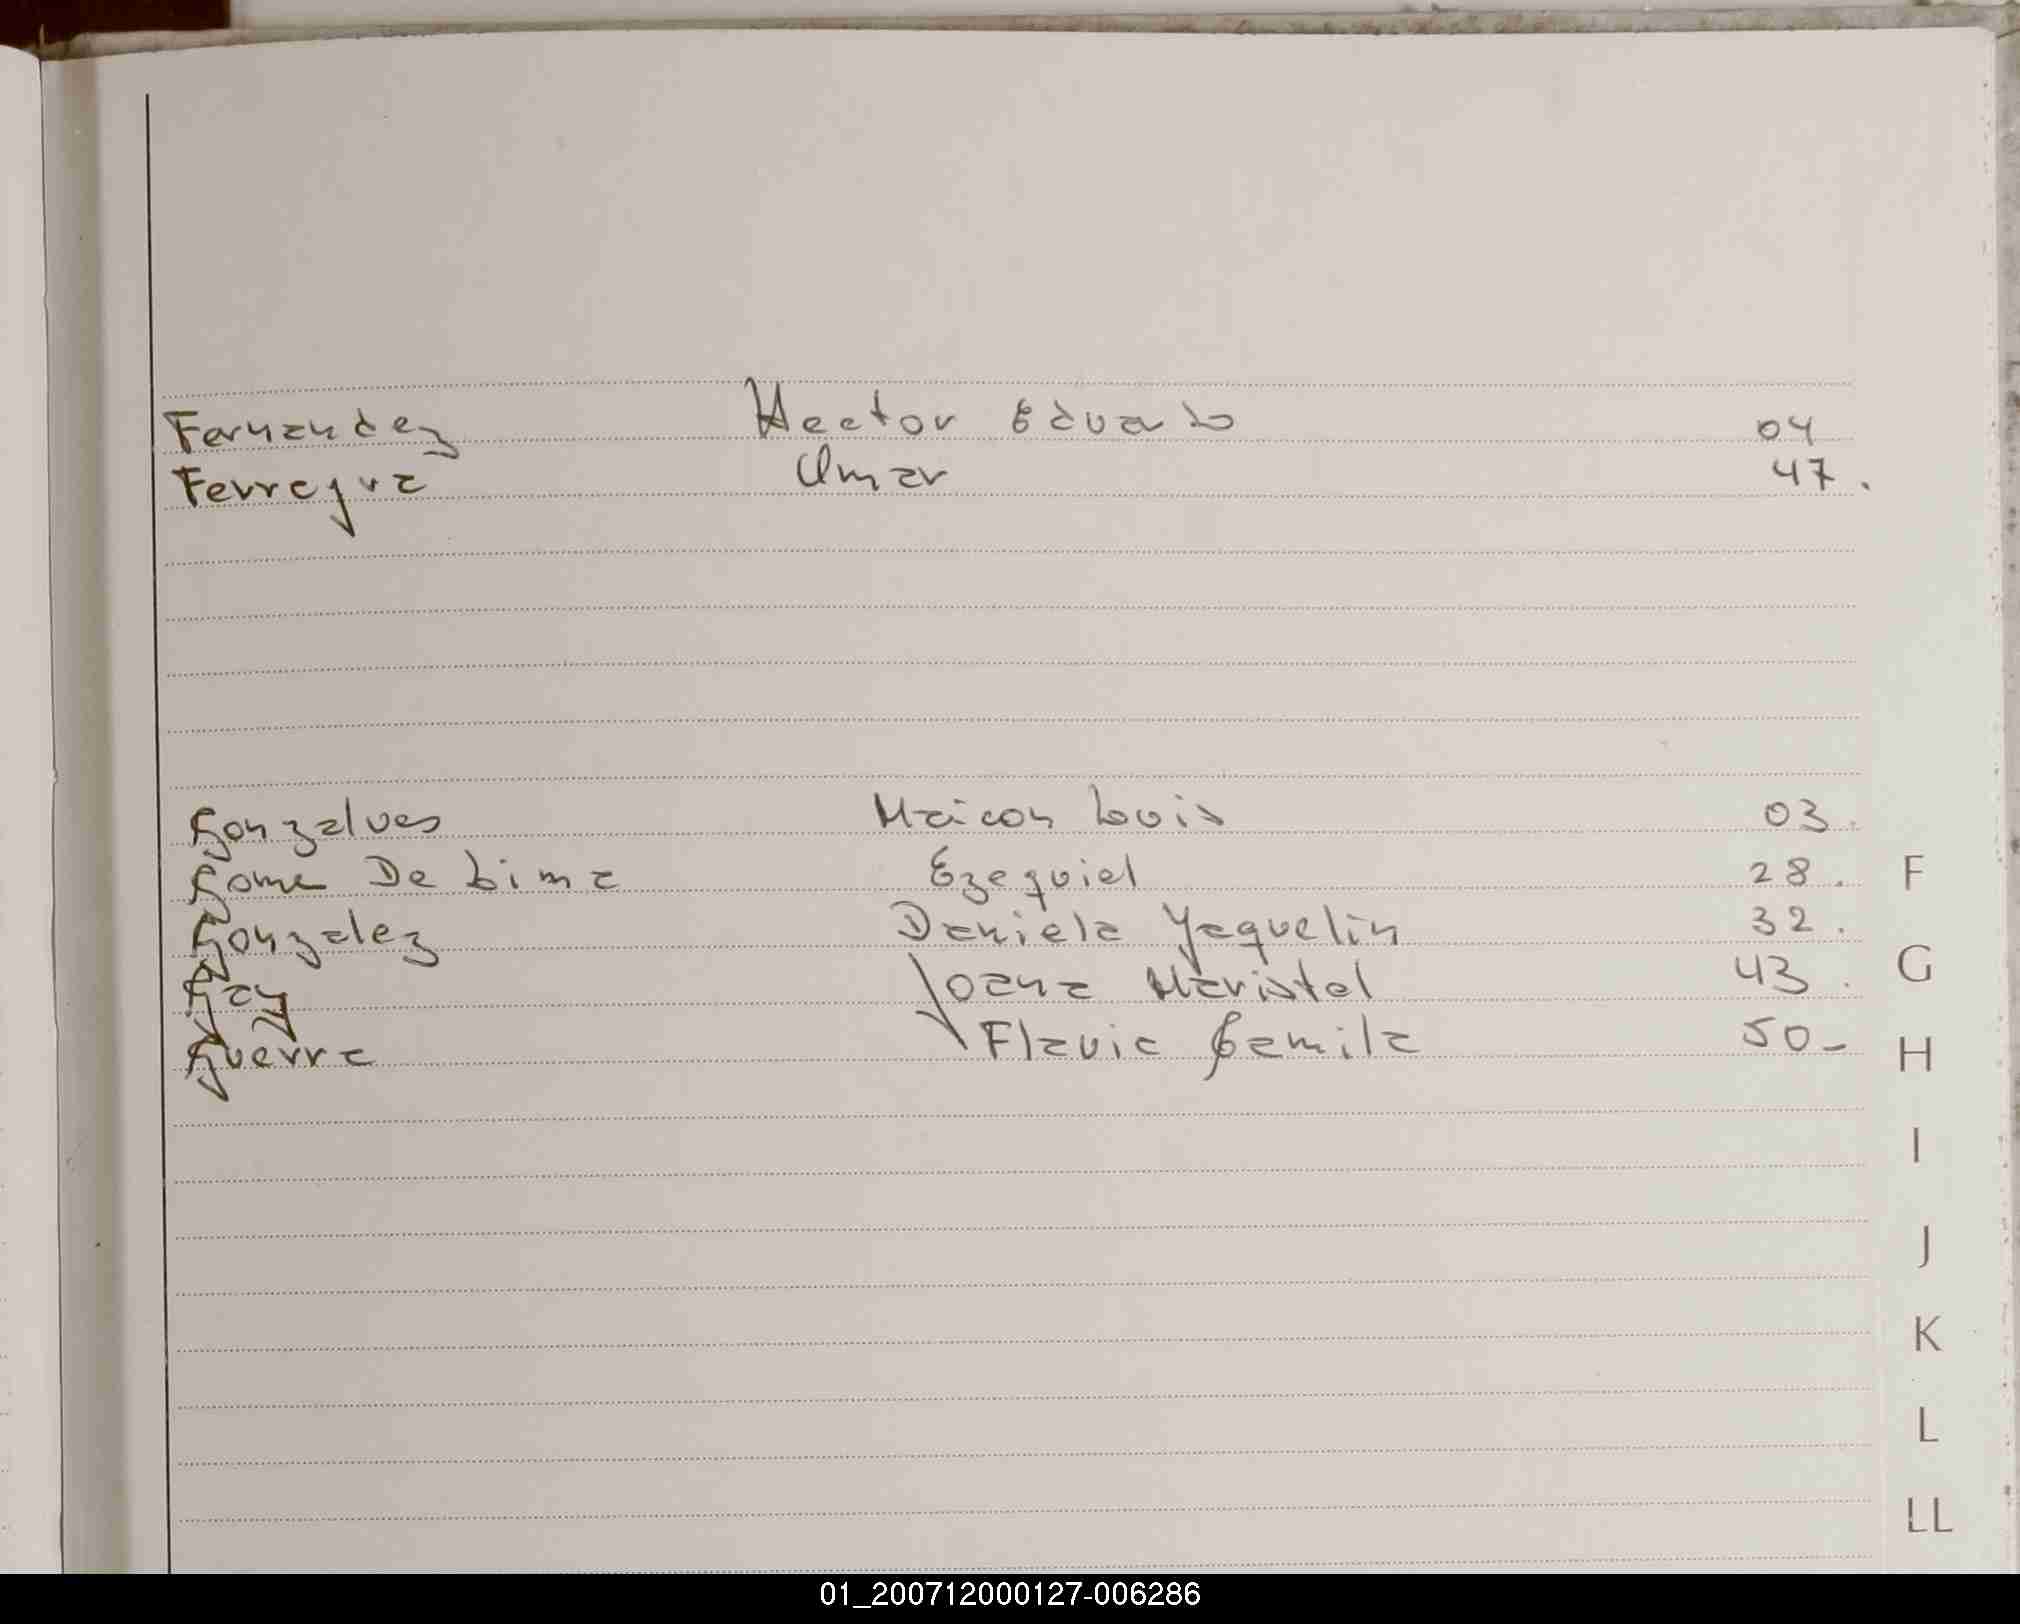 Fernandez Hector Eduardo 04
Ferreyra Omar 47.
Gonzalves Maicon Luis 03.
Gome De Lima Ezequiel 28.
Gonzalez Daniela Yaquelin 32.
Gay Joana Maristel 43.
Guerra Flavia Camila 50-
F
G
H
I
J
K
L
LL
01_200712000127-006286